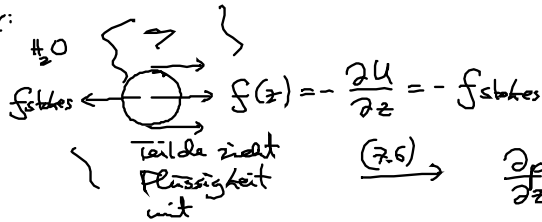 H₂O
f_stokes ← → f(z) = - ∂U/∂z = - f_stokes
Teilche zieht
Flüssigkeit
mit
(7.6) → ∂p/∂z